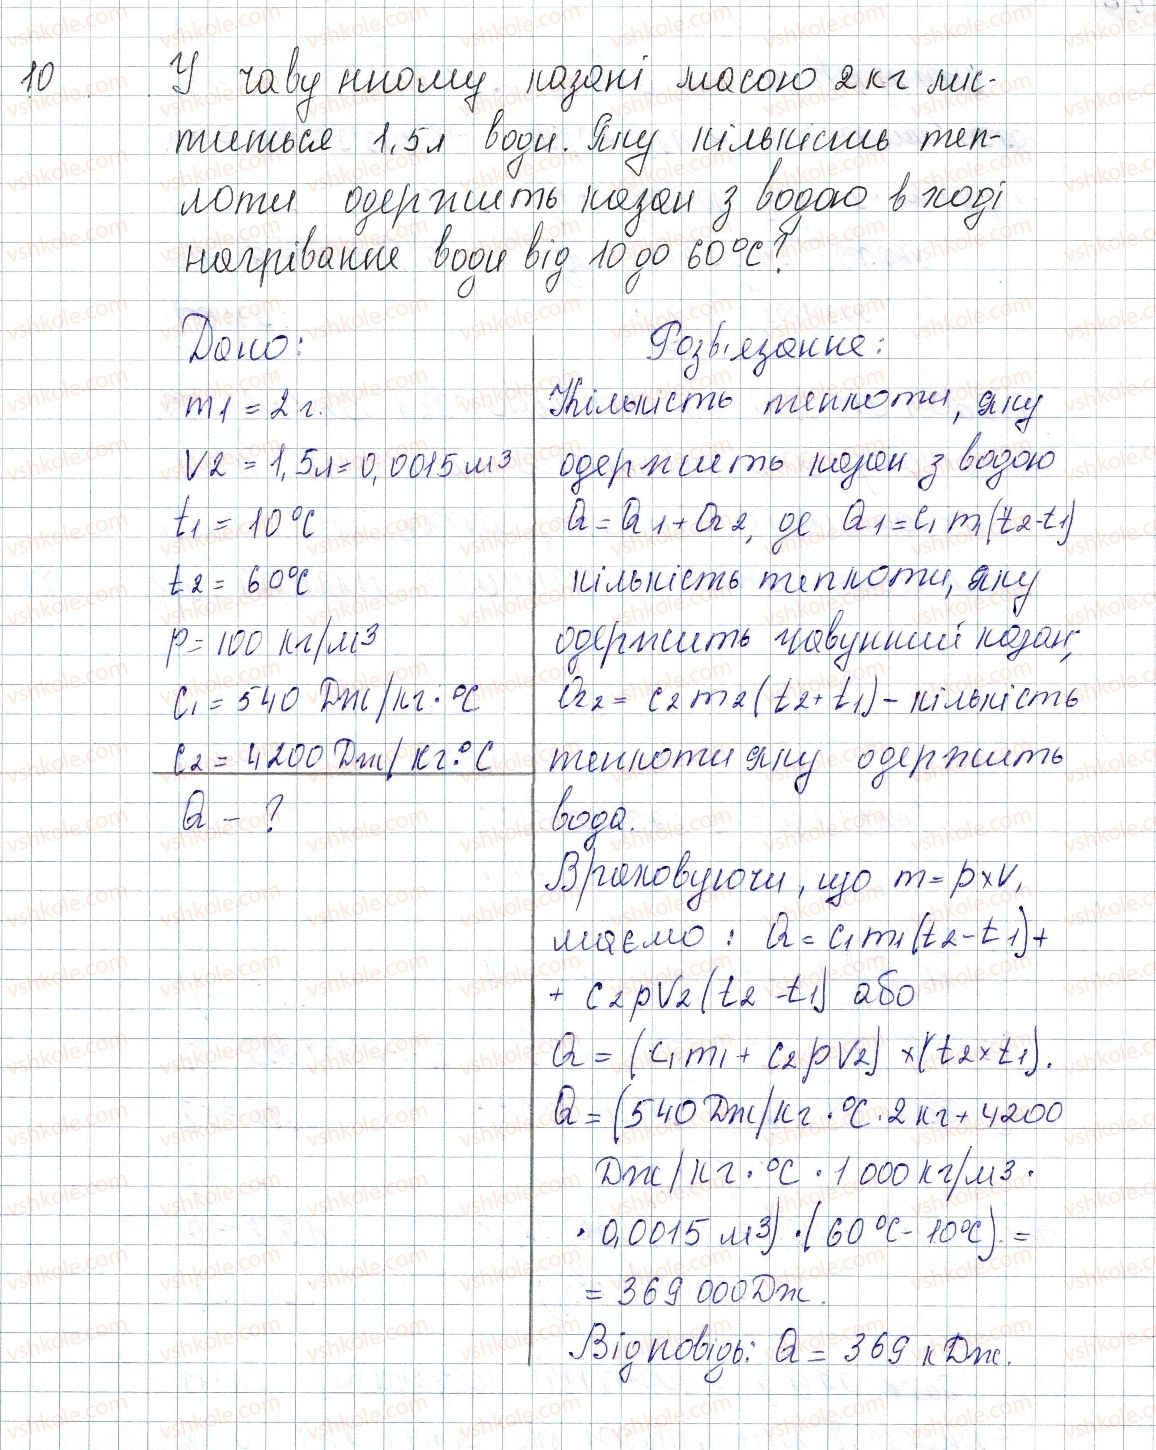 10 У чавунному казані масою 2 кг міс-
титься 1,5 л води. Яку кількість теп-
лоти одержить казан з водою в ході
нагрівання води від 10 до 60°С?
Дано:
m1 = 2 г.
V2 = 1,5л = 0,0015 м3
t1 = 10°С
t2 = 60°С
p = 100 кг/м3
c1 = 540 Дж/кг·°С
c2 = 4200 Дж/кг·°С
Q - ?
Розв'язання:
Кількість теплоти, яку
одержить казан з водою
Q = Q1 + Q2, де Q1 = c1 m1 (t2-t1)
кількість теплоти, яку
одержить чавунний казан;
Q2 = c2 m2 (t2+t1) - кількість
теплоти яку одержить
вода.
Враховуючи, що m = p×V,
маємо: Q = c1 m1 (t2-t1) +
+ c2 p V2 (t2 - t1) або
Q = (c1 m1 + c2 p V2) × (t2×t1).
Q = (540 Дж/кг·°С·2 кг + 4200
Дж/кг·°С · 1 000 кг/м3 ·
· 0,0015 м3) · (60°С - 10°С) =
= 369 000 Дж.
Відповідь: Q = 369 кДж.